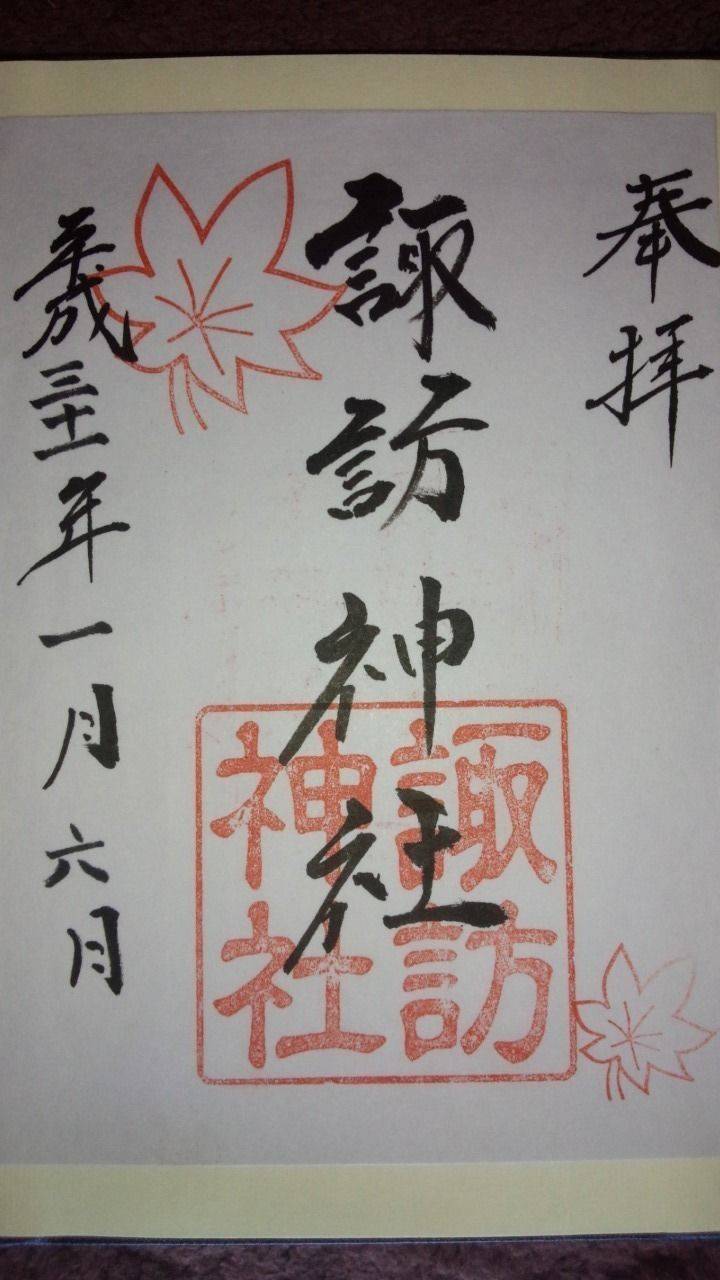 奉拝
諏訪神社
平成三十一年一月六日
諏訪
神社